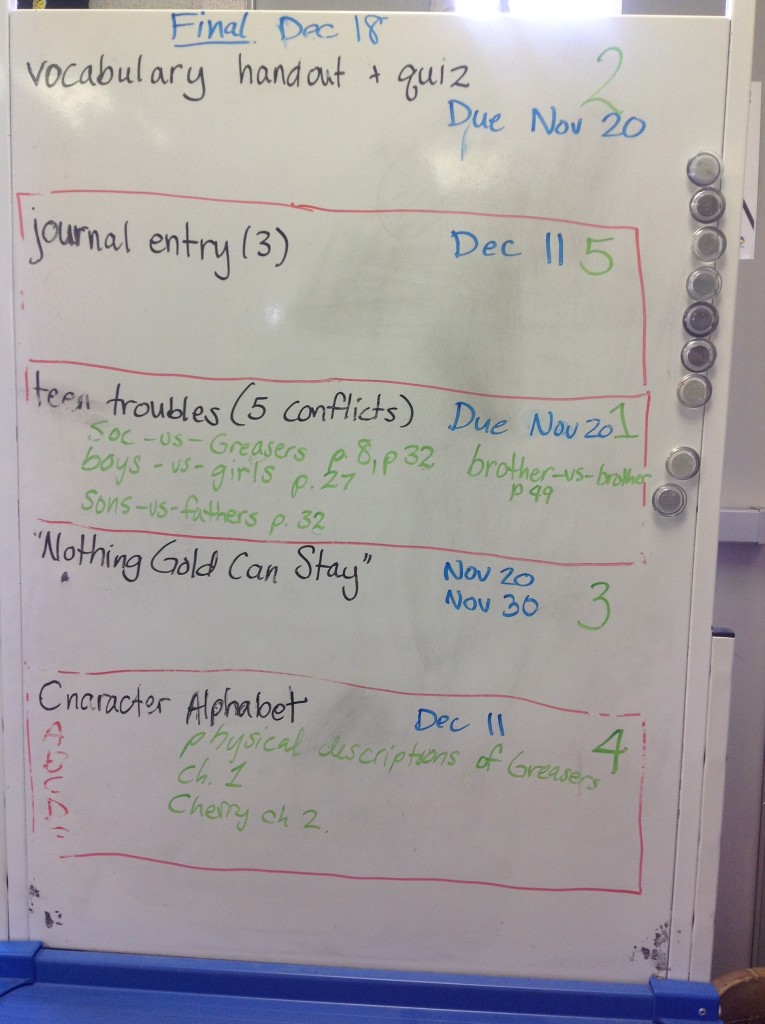 Final Dec 18
vocabulary handout + quiz 2
Due Nov 20
journal entry (3) Dec 11 5
teen troubles (5 conflicts) Due Nov 20 1
Soc-vs-Greasers p. 8, p 32
boys-vs-girls p. 27
brother-vs-brother
p 49
sons-vs-fathers p. 32
"Nothing Gold Can Stay" Nov 20
Nov 30 3
Character Alphabet Dec 11 4
physical descriptions of Greasers
ch. 1
Cherry ch 2.
A
B
C
D